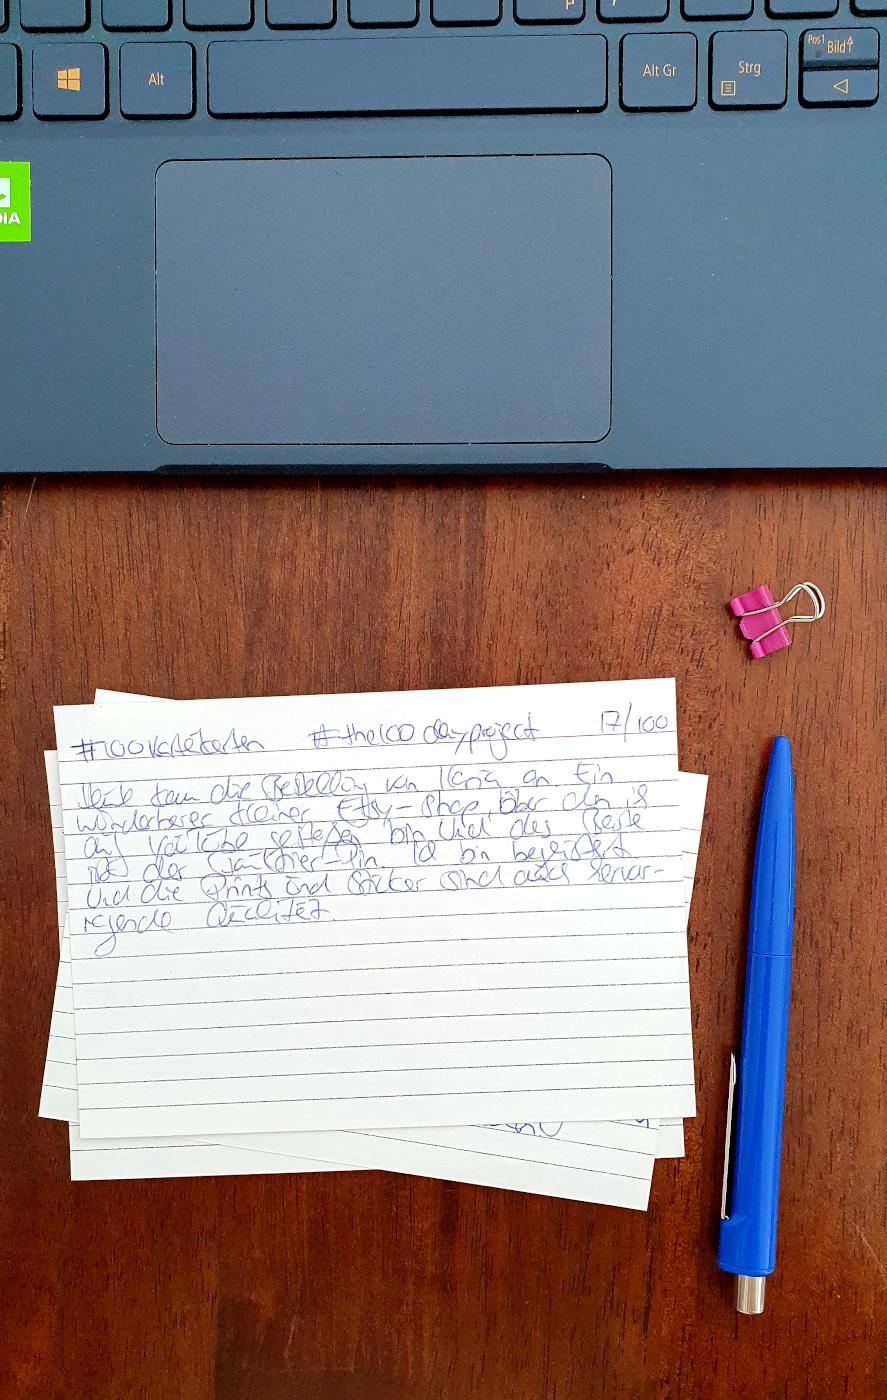 Alt
Alt Gr
Strg
Pos1
Bild
DIA
#100karteikarten #the100dayproject 17/100
Heute kam die Bestellung von an Ein
wunderbarer kleiner Etsy-Shop, über den ich
auf gestoßen bin Und das Beste
ist der Pin. Ich bin begeistert
Und die Prints und Sticker sind auch hervor-
ragende Qualität.